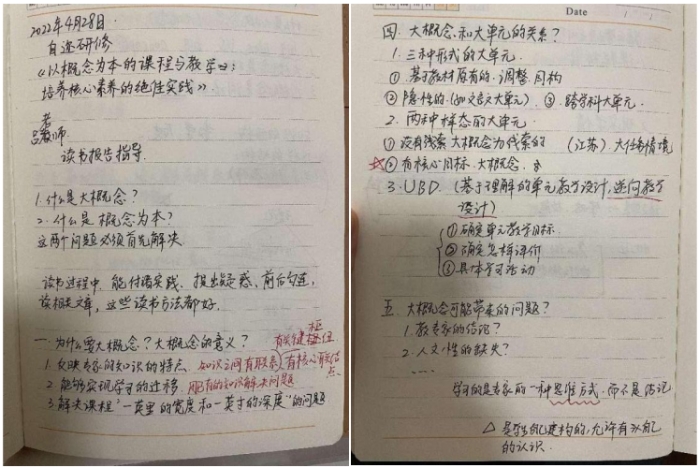 2022年4月28日.
自逊研修
《以概念为本的课程与教学:
培养核心素养的绝佳实践》
老师
读书报告指导.
1.什么是大概念?
2.什么是概念为本?
这两个问题必须首先解决
读书过程中,能付诸实践,提出疑惑,前后勾连,
读相关文章,这些读书方法都好.
一.为什么要大概念?大概念的意义?
有关键
1.反映专家的知识的特点. 知识之间有联系,有核心联结
点.
2.能够实现学习的迁移. 用有的知识解决问题
3.解决课程"一英里的宽度和一英寸的深度"的问题
Date
四.大概念和大单元的关系?
1.三种形式的大单元.
①基于教材原有的.调整同构
②隐性的.(如文言文大单元).③.跨学科大单元.
2.两种样态的大单元.
①没有大概念为线索的 (江苏).大任务情境
☆②有核心目标.大概念.
3.UBD.(基于理解的单元教学设计,逆向教学
设计)
①确定单元教学目标.
②确定怎样评价
③具体学习活动
五.大概念可能带来的问题?
1.教专家的结论?
2.人文性的缺失?
学习的是专家的一种思维方式.而不是结论
△是学生自己建构的,允许有自己
的认识.